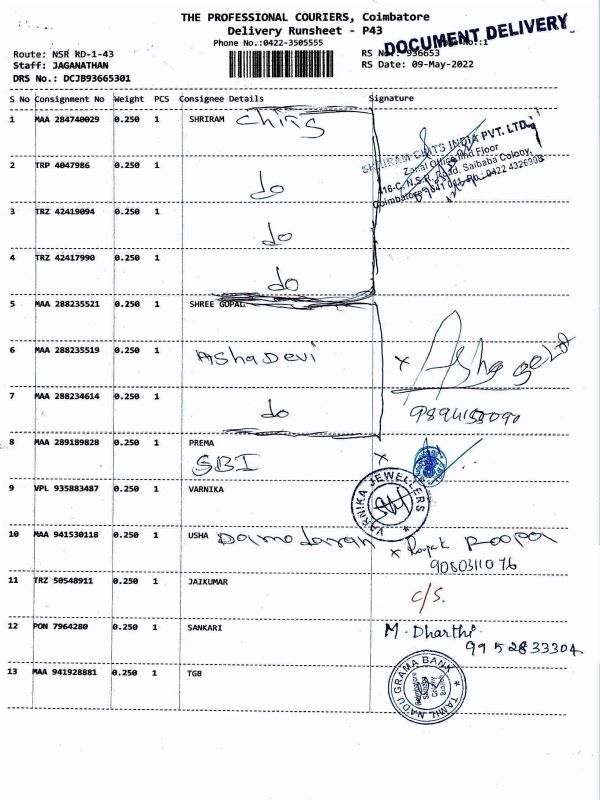 THE PROFESSIONAL COURIERS, Coimbatore
Delivery Runsheet - P43
DOCUMENT DELIVERY
Phone No.:0422-3505555
Route: NSR RD-1-43
Staff: JAGANATHAN
RS Date: 09-May-2022
DRS No.: DCJB93665301
S No Consignment No Weight PCS Consignee Details Signature
1 MAA 284740029 0.250 1 SHRIRAM chits
SHRIRAM CHITS INDIA PVT. LTD.,
Zonal Office IInd Floor
416-C, N.S.R. Road, Saibaba Colony,
Coimbatore - 641 011. Ph: 0422 4326903
2 TRP 4047986 0.250 1 do
3 TRZ 42419094 0.250 1 do
4 TRZ 42417990 0.250 1 do
5 MAA 288235521 0.250 1 SHREE GOPAL
6 MAA 288235519 0.250 1 Asha Devi x Asha
7 MAA 288234614 0.250 1 do
8 MAA 289189828 0.250 1 PREMA SBI x
9 VPL 935883487 0.250 1 VARNIKA
VARNIKA JEWELLERS
10 MAA 941530118 0.250 1 USHA Damodaran x Roopa
9080311076
11 TRZ 50548911 0.250 1 JAIKUMAR c/s.
12 PON 7964280 0.250 1 SANKARI M. Dharthi
9952833304
13 MAA 941928881 0.250 1 TGB
TAMIL NADU GRAMA BANK